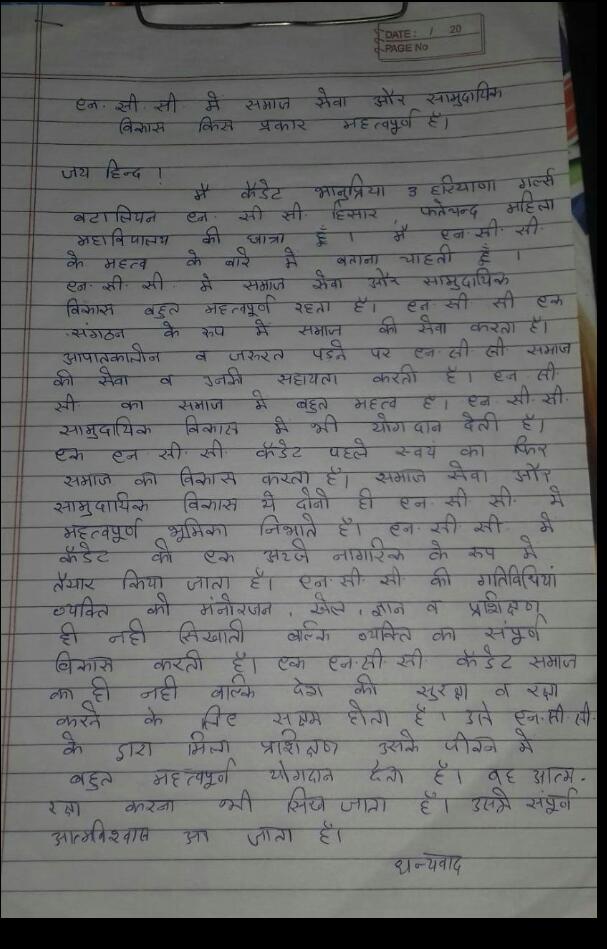 DATE: / 20
PAGE No
एन. सी. सी. में समाज सेवा और सामुदायिक
विकास किस प्रकार महत्वपूर्ण है।
जय हिन्द !
मैं कैडेट भानुप्रिया 3 हरियाणा गर्ल्स
बटालियन एन. सी. सी. हिसार, फतेचन्द महिला
महाविद्यालय की छात्रा हूँ । मैं एन. सी. सी.
के महत्व के बारे में बताना चाहती हूँ ।
एन. सी. सी. में समाज सेवा और सामुदायिक
विकास बहुत महत्वपूर्ण रहता है। एन. सी. सी एक
संगठन के रूप में समाज की सेवा करता है।
आपातकालीन व जरुरत पडने पर एन. सी. सी समाज
की सेवा व उनकी सहायता करती है । एन. सी.
सी. का समाज में बहुत महत्व है । एन. सी. सी.
सामुदायिक विकास में भी योगदान देती है।
एक एन. सी. सी. कैडेट पहले स्वयं का फिर
समाज का विकास करता है। समाज सेवा और
सामुदायिक विकास ये दोनो ही एन. सी. सी. में
महत्वपूर्ण भूमिका निभाते है। एन. सी. सी. में
कैडेट को एक अच्छे नागरिक के रूप में
तैयार किया जाता है। एन. सी. सी की गतिविधियां
व्यक्ति को मंनोरजन, खेल, ज्ञान व प्रशिक्षण
ही नही सिखाती बल्कि व्यक्ति का संपूर्ण
विकास करती है। एक एन. सी. सी कैडेट समाज
का ही नही बल्कि देश की सुरक्षा व रक्षा
करने के लिए सक्षम होता है । उसे एन. सी. सी.
के द्वारा मिला प्रशिक्षण उसके जीवन में
बहुत महत्वपूर्ण योगदान देता है। वह आत्म-
रक्षा करना भी सिख जाता है। उसमे संपूर्ण
आत्मविश्वास आ जाता है।
धन्यवाद